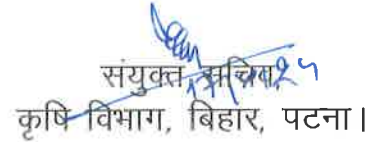 संयुक्त सचिव,
कृषि विभाग, बिहार, पटना।